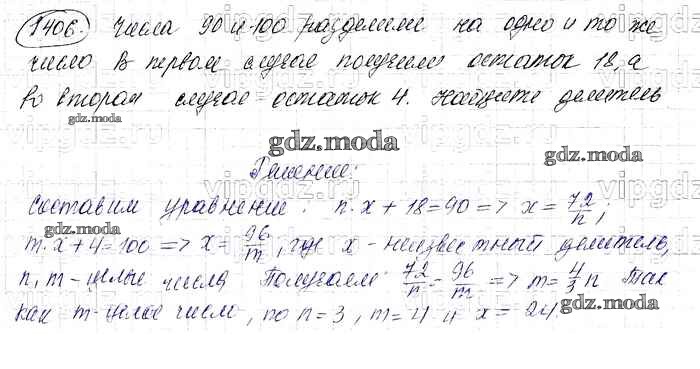 1406. Числа 90 и 100 разделили на одно и то же
число В первом случае получили остаток 18, а
во втором случае - остаток 4. Найдите делитель
gdz.moda
gdz.moda
gdz.moda
Решение:
Составим уравнение: n·x + 18 = 90 => x = 72/n;
gdz.moda
m·x + 4 = 100 => x = 96/m, где x - неизвестный делитель,
n, m - целые числа Получаем 72/n = 96/m => m = 4/3 n Так
gdz.moda
как m - целое число, то n = 3, m = 4 и x = 24